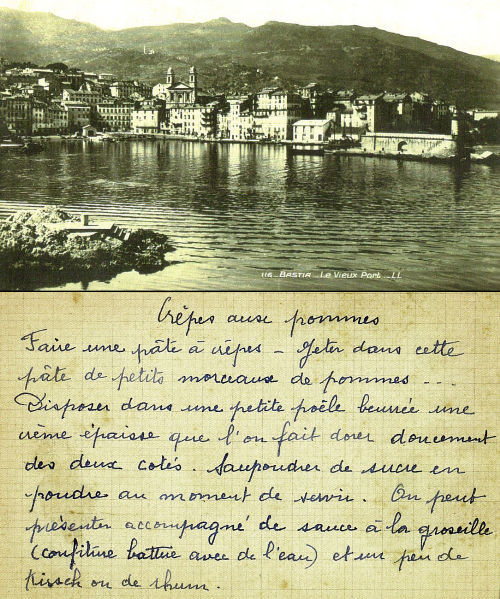 116 _ BASTIA _ Le Vieux Port _ LL
Crêpes aux pommes
Faire une pâte à crêpes - Jeter dans cette
pâte de petits morceaux de pommes ...
Disposer dans une petite poêle beurrée une
crème épaisse que l'on fait dorer doucement
des deux cotés. Saupoudrer de sucre en
poudre au moment de servir. On peut
présenter accompagné de sauce à la groseille
(confiture battue avec de l'eau) et un peu de
Kirsch ou de rhum.